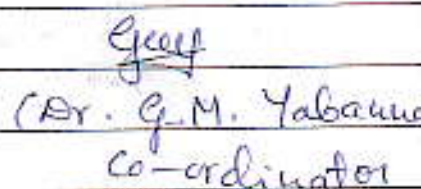 (Dr. G.M. Yabannu
Co-ordinator